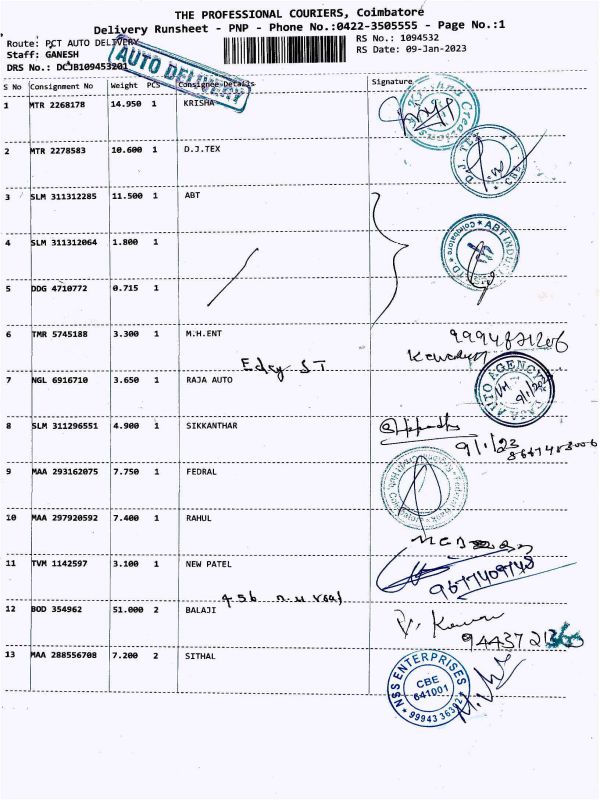 THE PROFESSIONAL COURIERS, Coimbatore
Delivery Runsheet - PNP - Phone No.:0422-3505555 - Page No.:1
Route: PCT AUTO DELIVERY
RS No.: 1094532
Staff: GANESH
RS Date: 09-Jan-2023
DRS No.: DCJB109453201
AUTO DELIVERY
S No Consignment No Weight PCS Consignee Details Signature
1 MTR 2268178 14.950 1 KRISHA
2 MTR 2278583 10.600 1 D.J.TEX
3 SLM 311312285 11.500 1 ABT
4 SLM 311312064 1.800 1
5 DDG 4710772 0.715 1
6 TMR 5745188 3.300 1 M.H.ENT
7 NGL 6916710 3.650 1 RAJA AUTO
RAJA AUTO AGENCY
9/1/2023
8 SLM 311296551 4.900 1 SIKKANTHAR
9/1/23
9 MAA 293162075 7.750 1 FEDRAL
10 MAA 297920592 7.400 1 RAHUL
11 TVM 1142597 3.100 1 NEW PATEL
12 BOD 354962 51.000 2 BALAJI
13 MAA 288556708 7.200 2 SITHAL
NSS ENTERPRISES
CBE
641001